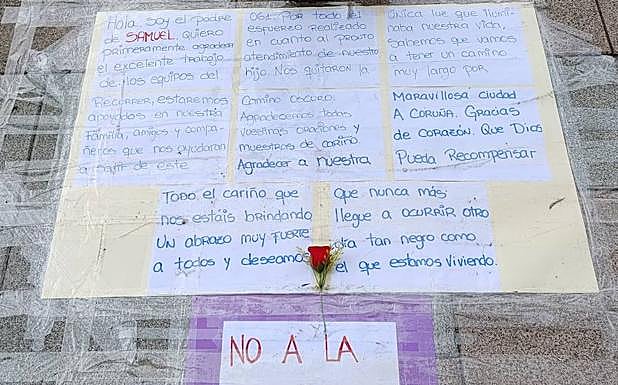 Hola, soy el padre
de SAMUEL. quiero
primeramente agradecer
el excelente trabajo
de los equipos del
061. Por todo el
esfuerzo realizado
en cuanto al pronto
atendimiento de nuestro
hijo. Nos quitaron la
única luz que ilumi
naba nuestra vida,
sabemos que vamos
a tener un camino
muy largo por
Recorrer, estaremos
apoyados en nuestra
Familia, amigos y compa-
ñeros que nos ayudaran
a salir de este
Camino oscuro.
Agradecemos todas
vuestras oraciones y
muestros de cariño
Agradecer a nuestra
Maravillosa ciudad
A CORUÑA. Gracias
de corazón. Que Dios
Pueda Recompensar
TODO el cariño que
nos estáis brindando
UN ABRAZO MUY FUERTE
a todos y deseamos
Que nunca más
llegue a ocurrir otro
día tan negro como
el que estamos viviendo.
NO A LA